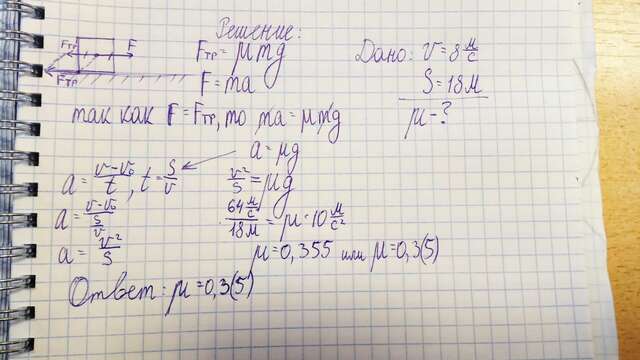 Решение:
Fтр F
Fтр
Fтр = μmg
F = ma
Дано: v = 8 м/с
S = 18м
μ - ?
так как F = Fтр, то ma = μmg
a = μg
a = (v-v₀)/t, t = S/v
v²/S = μg
a = (v-v₀)/(S/v)
(64 м/с)/(18м) = μ · 10 м/с²
a = v²/S
μ = 0,355 или μ = 0,3(5)
Ответ: μ = 0,3(5)